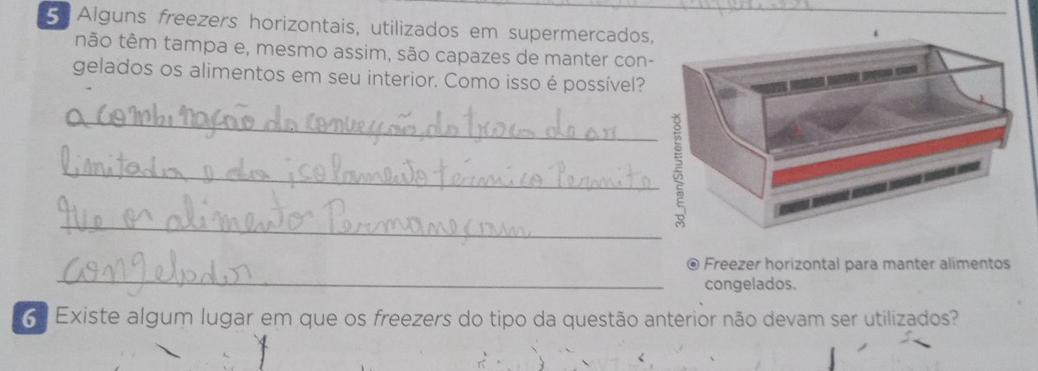 5 Alguns freezers horizontais, utilizados em supermercados,
não têm tampa e, mesmo assim, são capazes de manter con-
gelados os alimentos em seu interior. Como isso é possível?
a combinação da convecção, da troca de ar
limitada e do isolamento térmico Permite
que os alimentos Permaneçam
congelados.
3d_man/Shutterstock
Freezer horizontal para manter alimentos
congelados.
6 Existe algum lugar em que os freezers do tipo da questão anterior não devam ser utilizados?